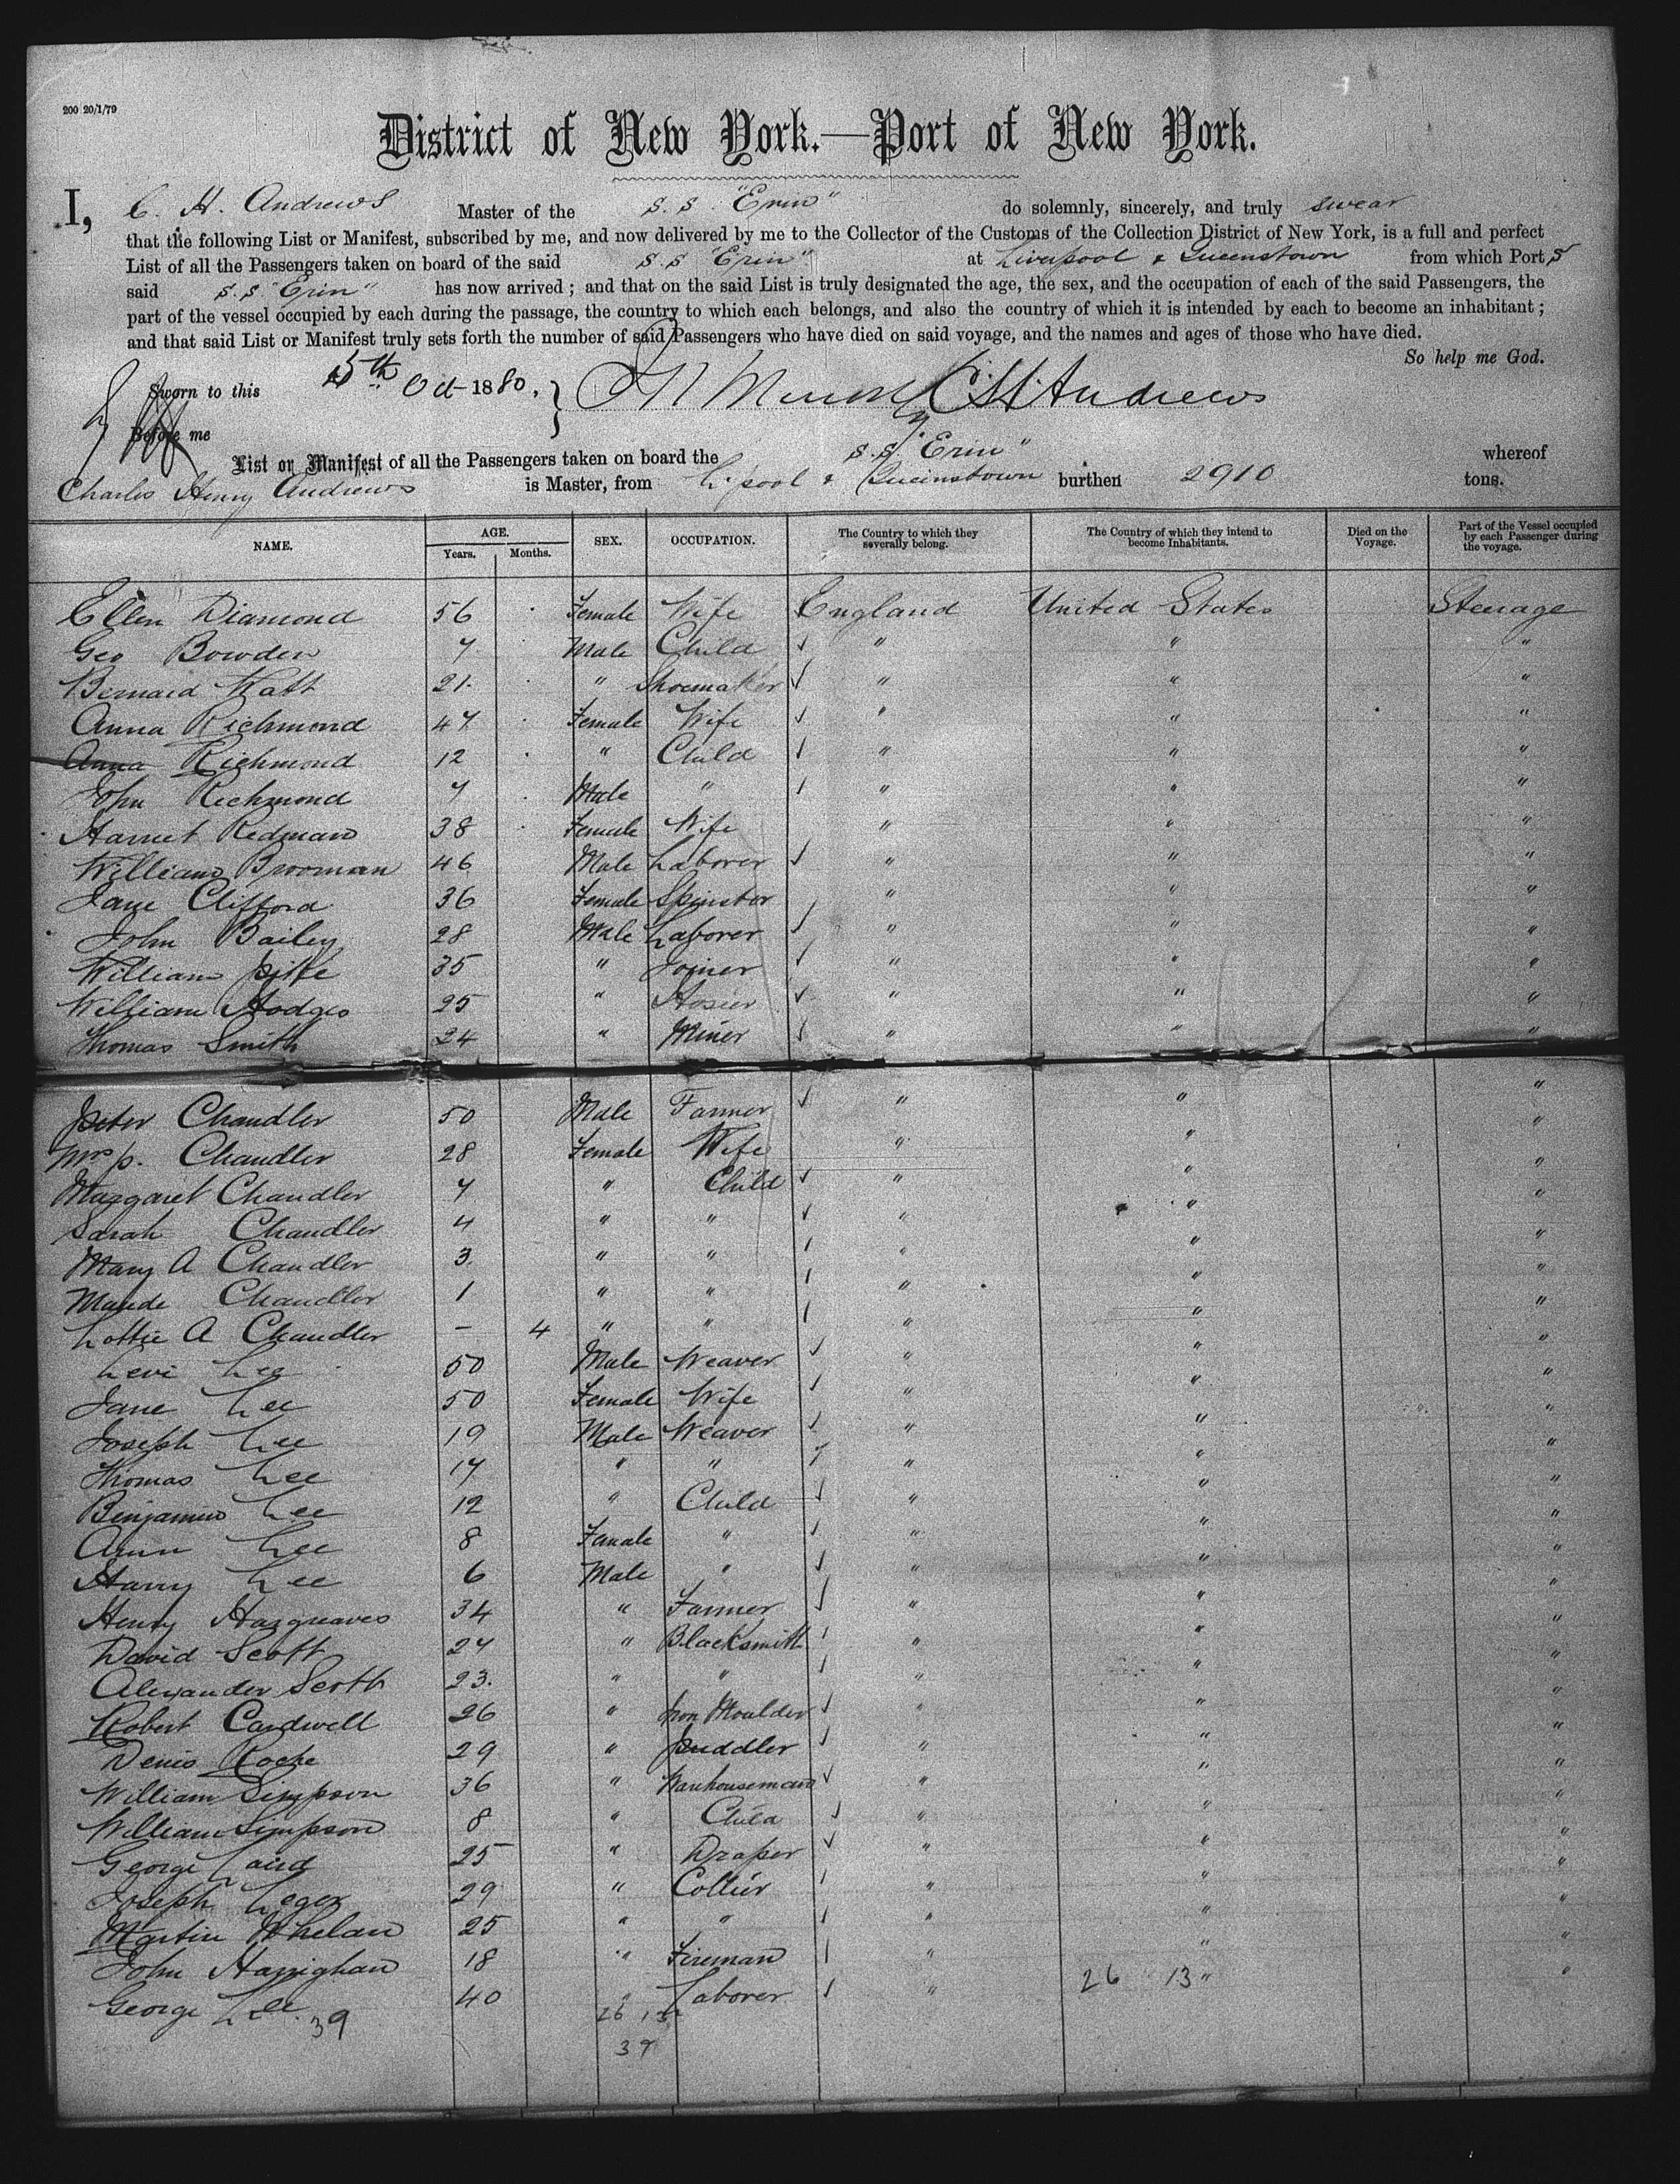 200 20/1/79
District of New York.—Port of New York.
I, C. H. Andrews Master of the S. S. "Erin" do solemnly, sincerely, and truly swear
that the following List or Manifest, subscribed by me, and now delivered by me to the Collector of the Customs of the Collection District of New York, is a full and perfect
List of all the Passengers taken on board of the said S. S "Erin" at Liverpool & Queenstown from which Port s
said S. S. "Erin" has now arrived; and that on the said List is truly designated the age, the sex, and the occupation of each of the said Passengers, the
part of the vessel occupied by each during the passage, the country to which each belongs, and also the country of which it is intended by each to become an inhabitant;
and that said List or Manifest truly sets forth the number of said Passengers who have died on said voyage, and the names and ages of those who have died.
So help me God.
Sworn to this 5th Oct 1880. C. H. Andrews
Before me
List or Manifest of all the Passengers taken on board the S. S. "Erin" whereof
Charles Henry Andrews is Master, from L'pool & Queenstown burthen 2910 tons.
NAME. AGE. Years. Months. SEX. OCCUPATION. The Country to which they severally belong. The Country of which they intend to become Inhabitants. Died on the Voyage. Part of the Vessel occupied by each Passenger during the voyage.
Ellen Diamond 56 Female Wife England United States Steerage
Geo Bowden 7 Male Child " " "
Bernard Watt 21 " Shoemaker " " "
Anna Richmond 47 Female Wife " " "
Anna Richmond 12 " Child " " "
John Richmond 7 Male " " " "
Harriet Redman 38 Female Wife " " "
William Brooman 46 Male Laborer " " "
Jane Clifford 36 Female Spinster " " "
John Bailey 28 Male Laborer " " "
William Pike 35 " Joiner " " "
William Hodges 25 " Hosier " " "
Thomas Smith 24 " Miner " " "
Peter Chandler 50 Male Farmer " " "
Mrs P. Chandler 28 Female Wife " " "
Margaret Chandler 7 " Child " " "
Sarah Chandler 4 " " " " "
Mary A Chandler 3 " " " " "
Maude Chandler 1 " " " " "
Lottie A Chandler — 4 " " " " "
Levi Lee 50 Male Weaver " " "
Jane Lee 50 Female Wife " " "
Joseph Lee 19 Male Weaver " " "
Thomas Lee 17 " " " " "
Benjamin Lee 12 " Child " " "
Ann Lee 8 Female " " " "
Harry Lee 6 Male " " " "
Henry Hargreaves 34 " Farmer " " "
David Scott 24 " Blacksmith " " "
Alexander Scott 23 " " " " "
Robert Cardwell 26 " Iron Moulder " " "
Denis Roche 29 " Puddler " " "
William Simpson 36 " Warehouseman " " "
William Simpson 8 " Child " " "
George Laird 25 " Draper " " "
Joseph 29 " Collier " " "
Martin Whelan 25 " " " " "
John Hanighan 18 " Fireman " " "
George Lee 40 " Laborer " 26 13 " "
39 26 13
39